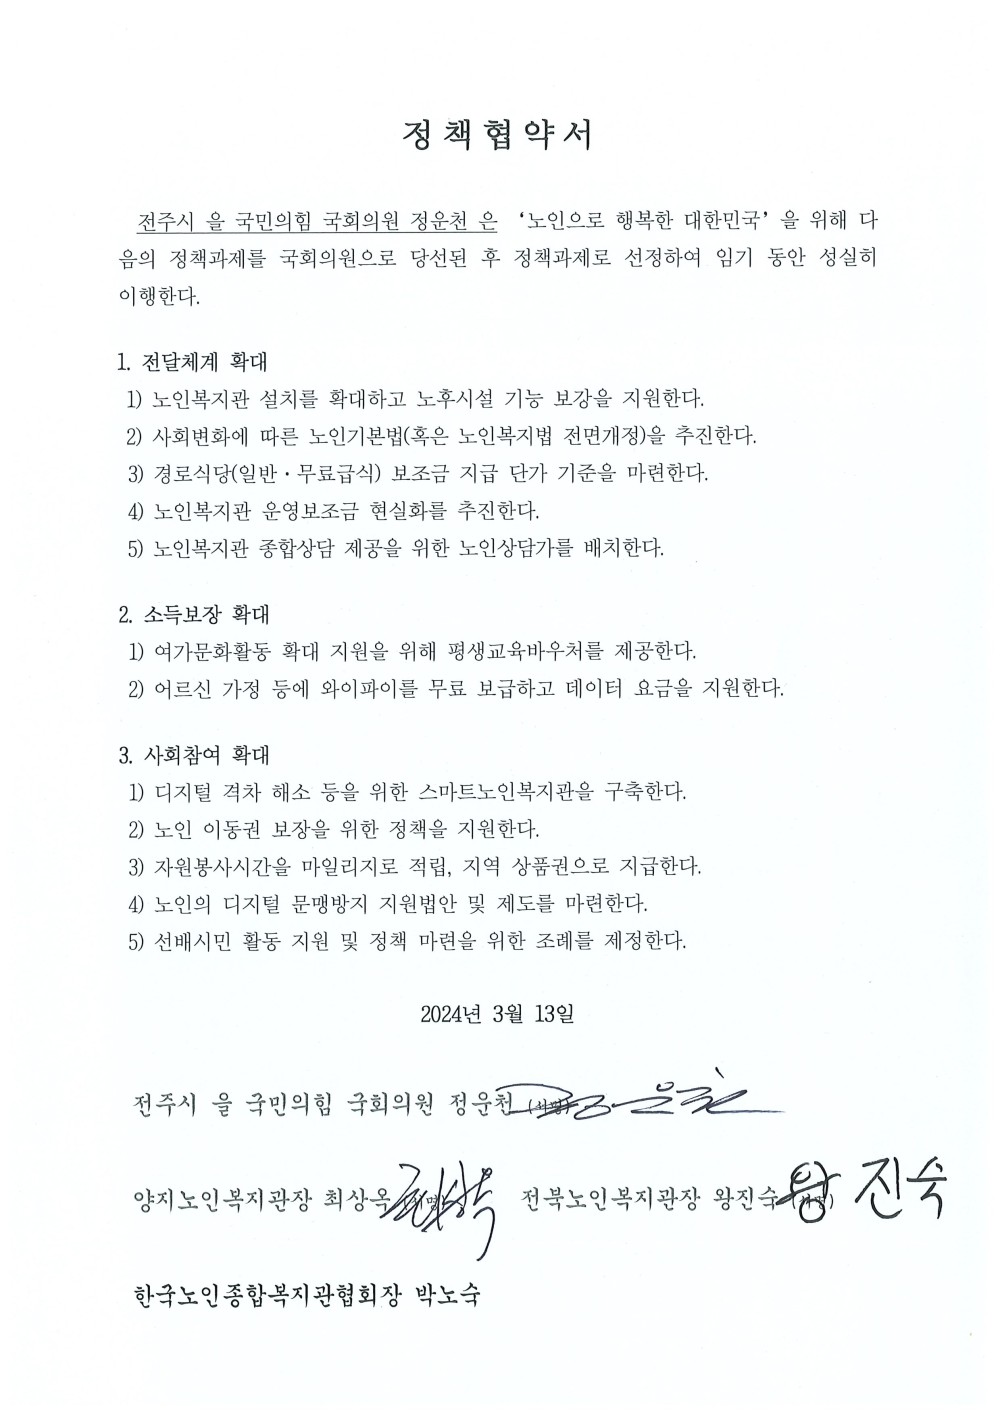 정책협약서
전주시 을 국민의힘 국회의원 정운천 은 ‘노인으로 행복한 대한민국’ 을 위해 다
음의 정책과제를 국회의원으로 당선된 후 정책과제로 선정하여 임기 동안 성실히
이행한다.
1. 전달체계 확대
1) 노인복지관 설치를 확대하고 노후시설 기능 보강을 지원한다.
2) 사회변화에 따른 노인기본법(혹은 노인복지법 전면개정)을 추진한다.
3) 경로식당(일반・무료급식) 보조금 지급 단가 기준을 마련한다.
4) 노인복지관 운영보조금 현실화를 추진한다.
5) 노인복지관 종합상담 제공을 위한 노인상담가를 배치한다.
2. 소득보장 확대
1) 여가문화활동 확대 지원을 위해 평생교육바우처를 제공한다.
2) 어르신 가정 등에 와이파이를 무료 보급하고 데이터 요금을 지원한다.
3. 사회참여 확대
1) 디지털 격차 해소 등을 위한 스마트노인복지관을 구축한다.
2) 노인 이동권 보장을 위한 정책을 지원한다.
3) 자원봉사시간을 마일리지로 적립, 지역 상품권으로 지급한다.
4) 노인의 디지털 문맹방지 지원법안 및 제도를 마련한다.
5) 선배시민 활동 지원 및 정책 마련을 위한 조례를 제정한다.
2024년 3월 13일
전주시 을 국민의힘 국회의원 정운천 (서명)
양지노인복지관장 최상옥 (서명) 전북노인복지관장 왕진숙 (서명) 왕진숙
한국노인종합복지관협회장 박노숙